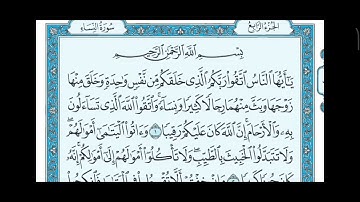 سُورَةُ النِّسَاءِ
الجُزءُ الرَّابِعُ
بِسْمِ اللَّهِ الرَّحْمَٰنِ الرَّحِيمِ
يَٰٓأَيُّهَا ٱلنَّاسُ ٱتَّقُوا۟ رَبَّكُمُ ٱلَّذِى خَلَقَكُم مِّن نَّفْسٍ وَٰحِدَةٍ وَخَلَقَ مِنْهَا
زَوْجَهَا وَبَثَّ مِنْهُمَا رِجَالًا كَثِيرًا وَنِسَآءً وَٱتَّقُوا۟ ٱللَّهَ ٱلَّذِى تَسَآءَلُونَ
بِهِۦ وَٱلْأَرْحَامَ إِنَّ ٱللَّهَ كَانَ عَلَيْكُمْ رَقِيبًا ١ وَءَاتُوا۟ ٱلْيَتَٰمَىٰٓ أَمْوَٰلَهُمْ
وَلَا تَتَبَدَّلُوا۟ ٱلْخَبِيثَ بِٱلطَّيِّبِ وَلَا تَأْكُلُوٓا۟ أَمْوَٰلَهُمْ إِلَىٰٓ أَمْوَٰلِكُمْ إِنَّهُۥ